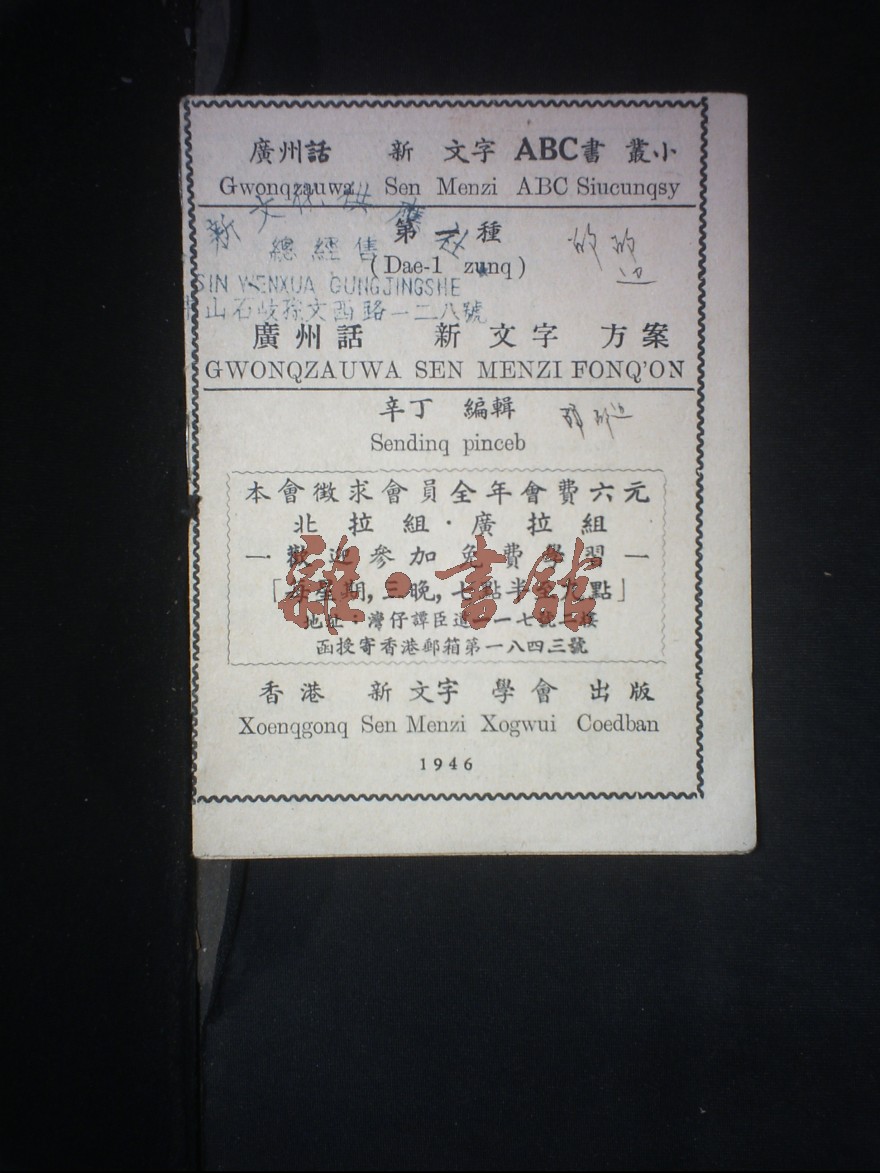 廣州話 新 文字 ABC書 叢小
Gwonqzauwa Sen Menzi ABC Siucunqsy
第一種
總經售
(Dae-1 zunq)
SIN WENXUA GUNGJINGSHE
山石岐孫文西路一二八號
廣州話 新 文字 方案
GWONQZAUWA SEN MENZI FONQ'ON
辛丁 編輯
Sendinq pinceb
本會徵求會員全年會費六元
北拉組·廣拉組
一歡迎參加免費學習一
「每星期,三晚,七點半至九點」
地址:灣仔譚臣道一一七號二樓
函授寄香港郵箱第一八四三號
雜·書館
香港 新 文字 學會 出版
Xoenqgonq Sen Menzi Xogwui Coedban
1946